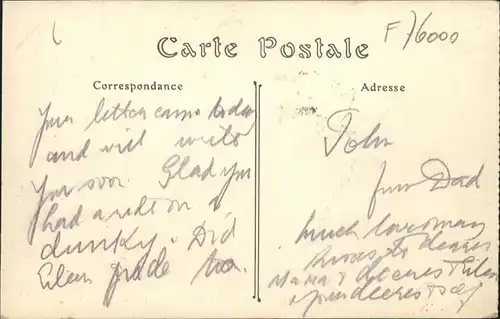 F/6000
Carte Postale
Correspondance
Adresse
Your letter came today
and will write
you soon. Glad you
had a ride on a
dunky. Did
Eileen ride too.
John
from Dad
much love many
kisses to
Mama &